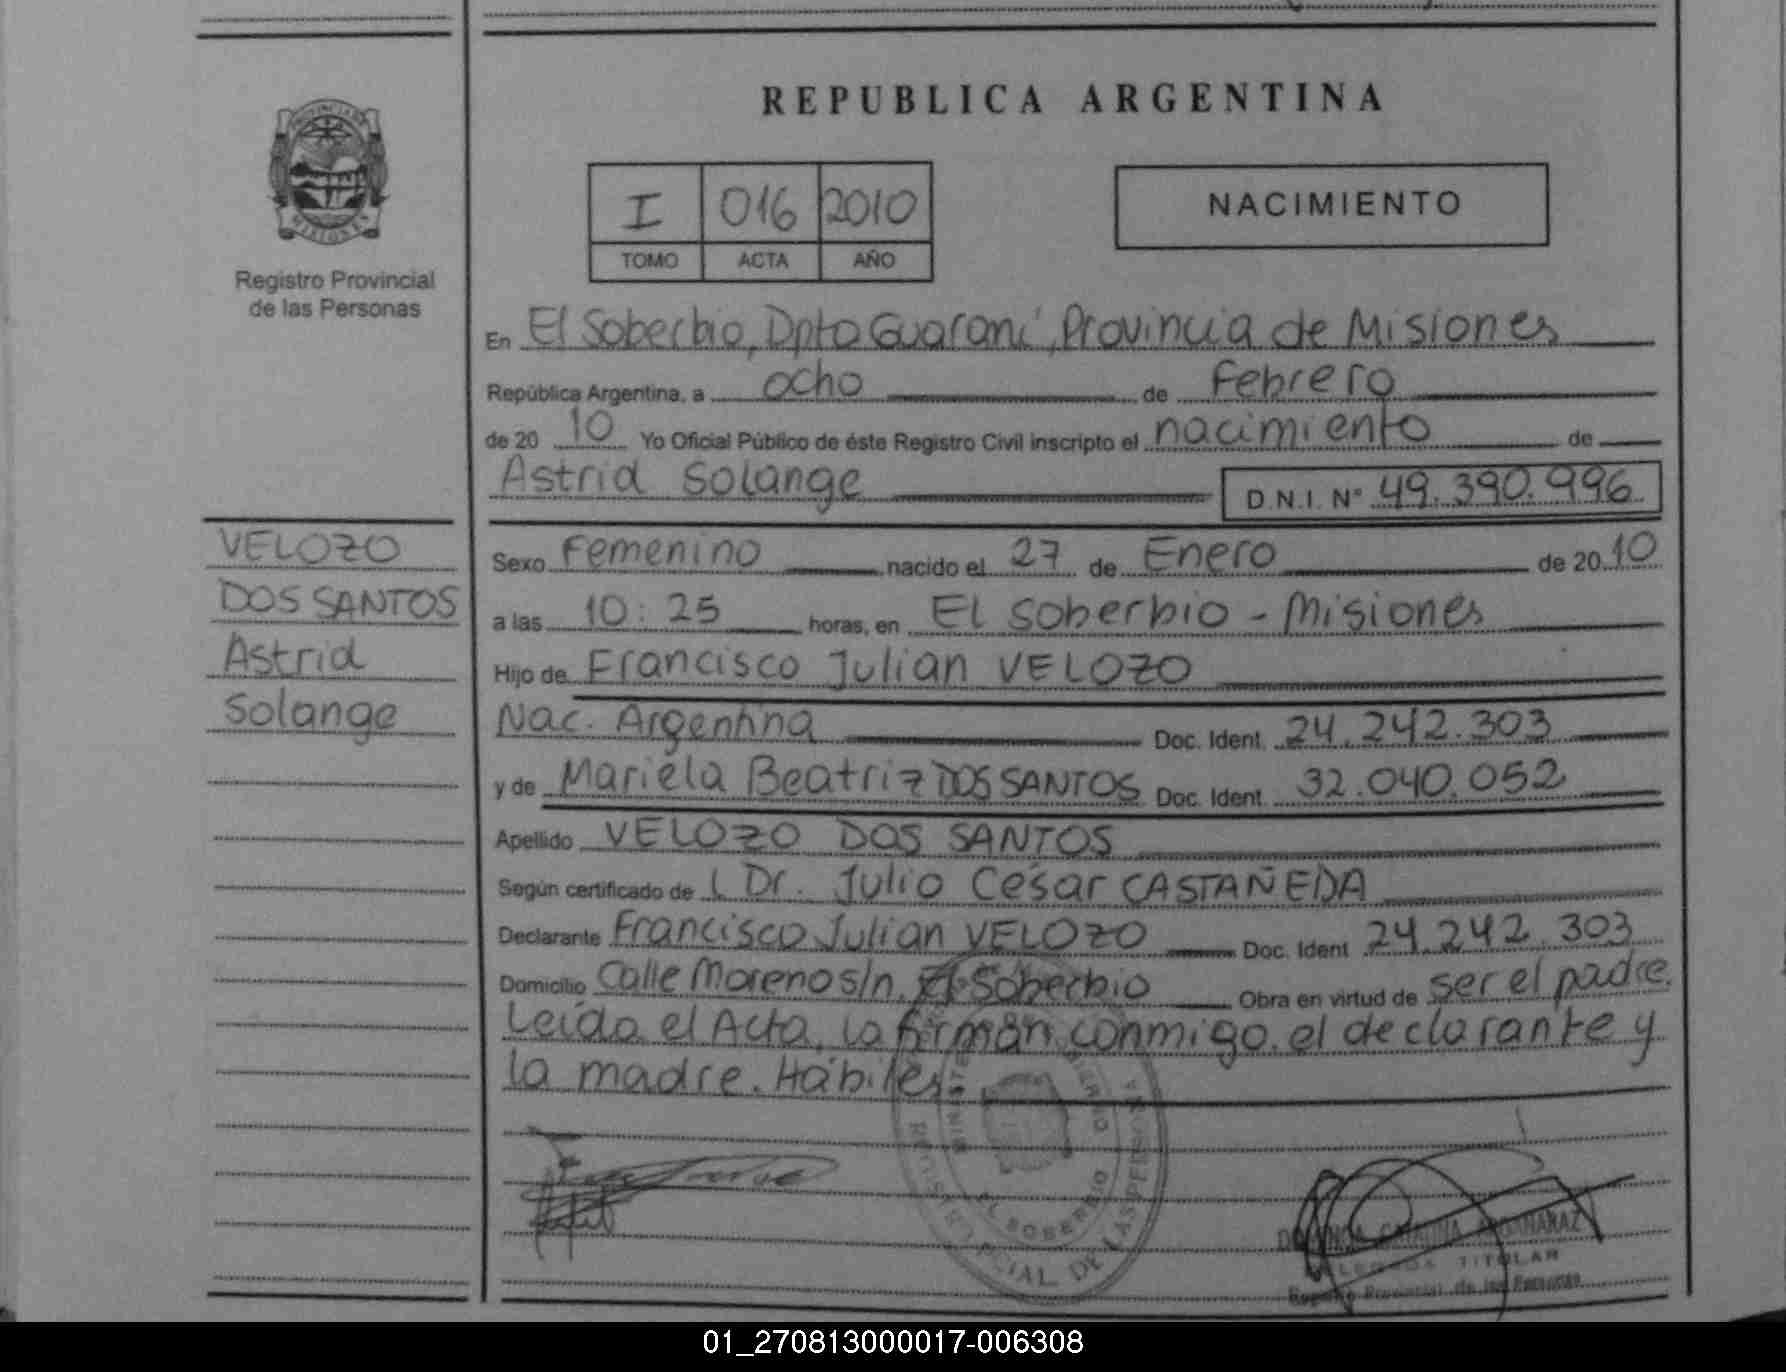 REPUBLICA ARGENTINA
PROVINCIA DE
MISIONES
Registro Provincial
de las Personas
I 016 2010
TOMO ACTA AÑO
NACIMIENTO
En El Soberbio, Dpto Guaraní, Provincia de Misiones
República Argentina, a ocho de Febrero
de 20 10 Yo Oficial Público de éste Registro Civil inscripto el nacimiento de
Astrid Solange D.N.I. Nº 49.390.996
VELOZO
DOS SANTOS
Astrid
Solange
Sexo Femenino nacido el 27 de Enero de 20 10
a las 10:25 horas, en El Soberbio - Misiones
Hijo de Francisco Julian VELOZO
Nac. Argentina Doc. Ident. 24.242.303
y de Mariela Beatriz DOS SANTOS Doc. Ident. 32.040.052
Apellido VELOZO DOS SANTOS
Según certificado de l Dr. Julio César CASTAÑEDA
Declarante Francisco Julian VELOZO Doc. Ident 24.242.303
Domicilio Calle Moreno s/n, El Soberbio Obra en virtud de ser el padre.
Leída el Acta, la firman conmigo el declarante y
la madre. Hábiles.
EL SOBERBIO
DE LAS PERSONAS
TITULAR
Registro Provincial de las Personas
01_270813000017-006308